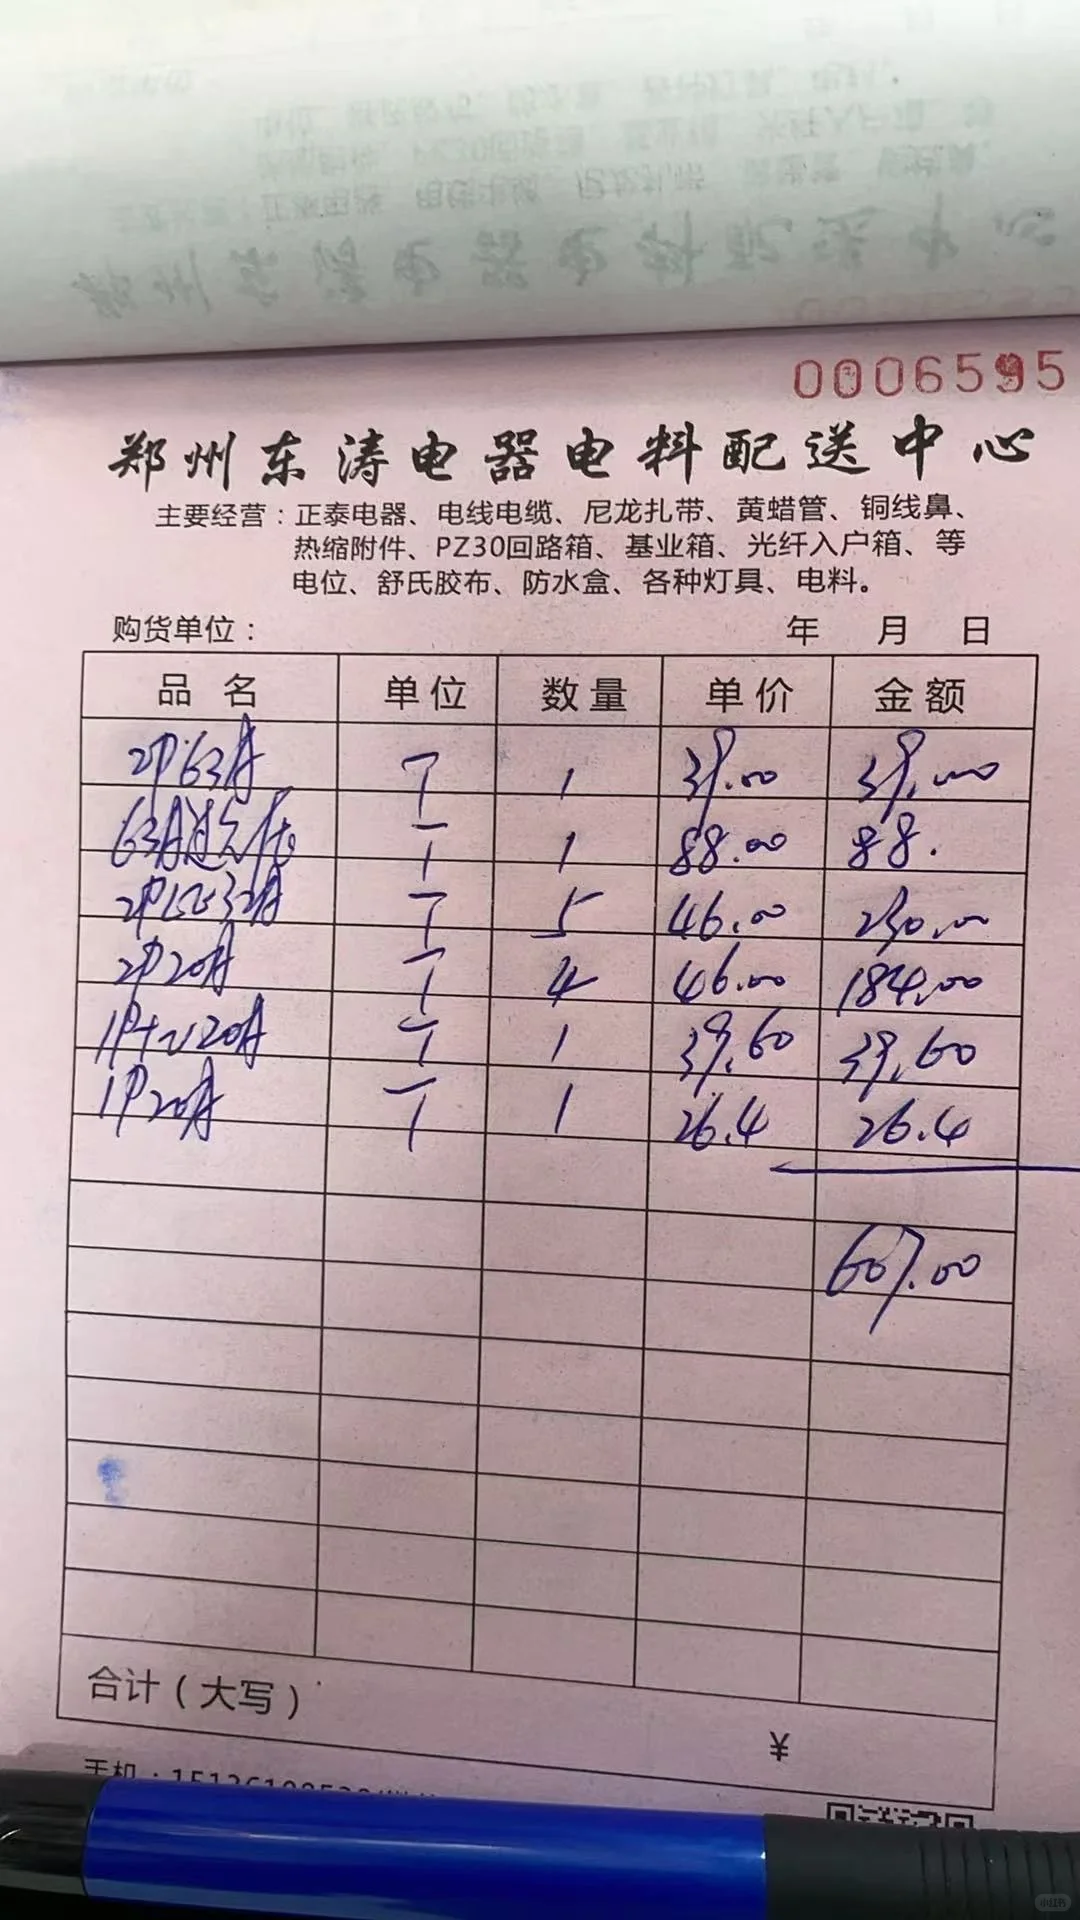 0006595
郑州东涛电器电料配送中心
主要经营：正泰电器、电线电缆、尼龙扎带、黄蜡管、铜线鼻、
热缩附件、PZ30回路箱、基业箱、光纤入户箱、等
电位、舒氏胶布、防水盒、各种灯具、电料。
购货单位： 年 月 日
品名 单位 数量 单价 金额
2P63A 丁 1 39.00 39.00
63A过欠压 丁 1 88.00 88.
2P 32A 丁 5 46.00 230.00
2P20A 丁 4 46.00 184.00
1P+N20A 丁 1 39.60 39.60
1P20A 丁 1 26.4 26.4
607.00
合计（大写）
¥
手机：
小红书